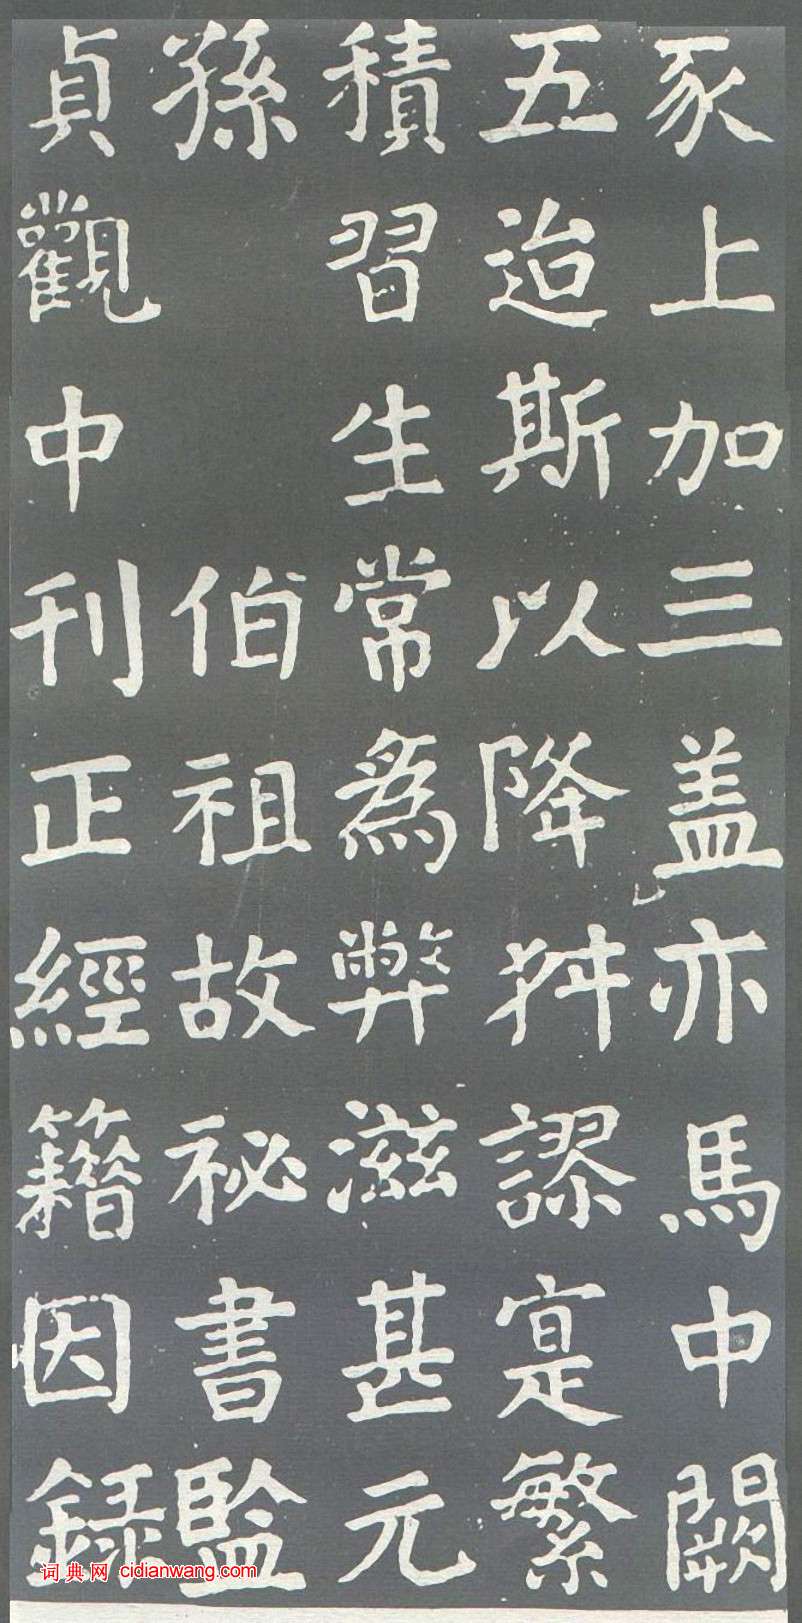 豕上加三盖亦馬中闕
五迨斯以降舛謬寔繁
積習生常爲弊滋甚元
孫 伯祖故祕書監
貞觀中刊正經籍因録
词典网 cidianwang.com